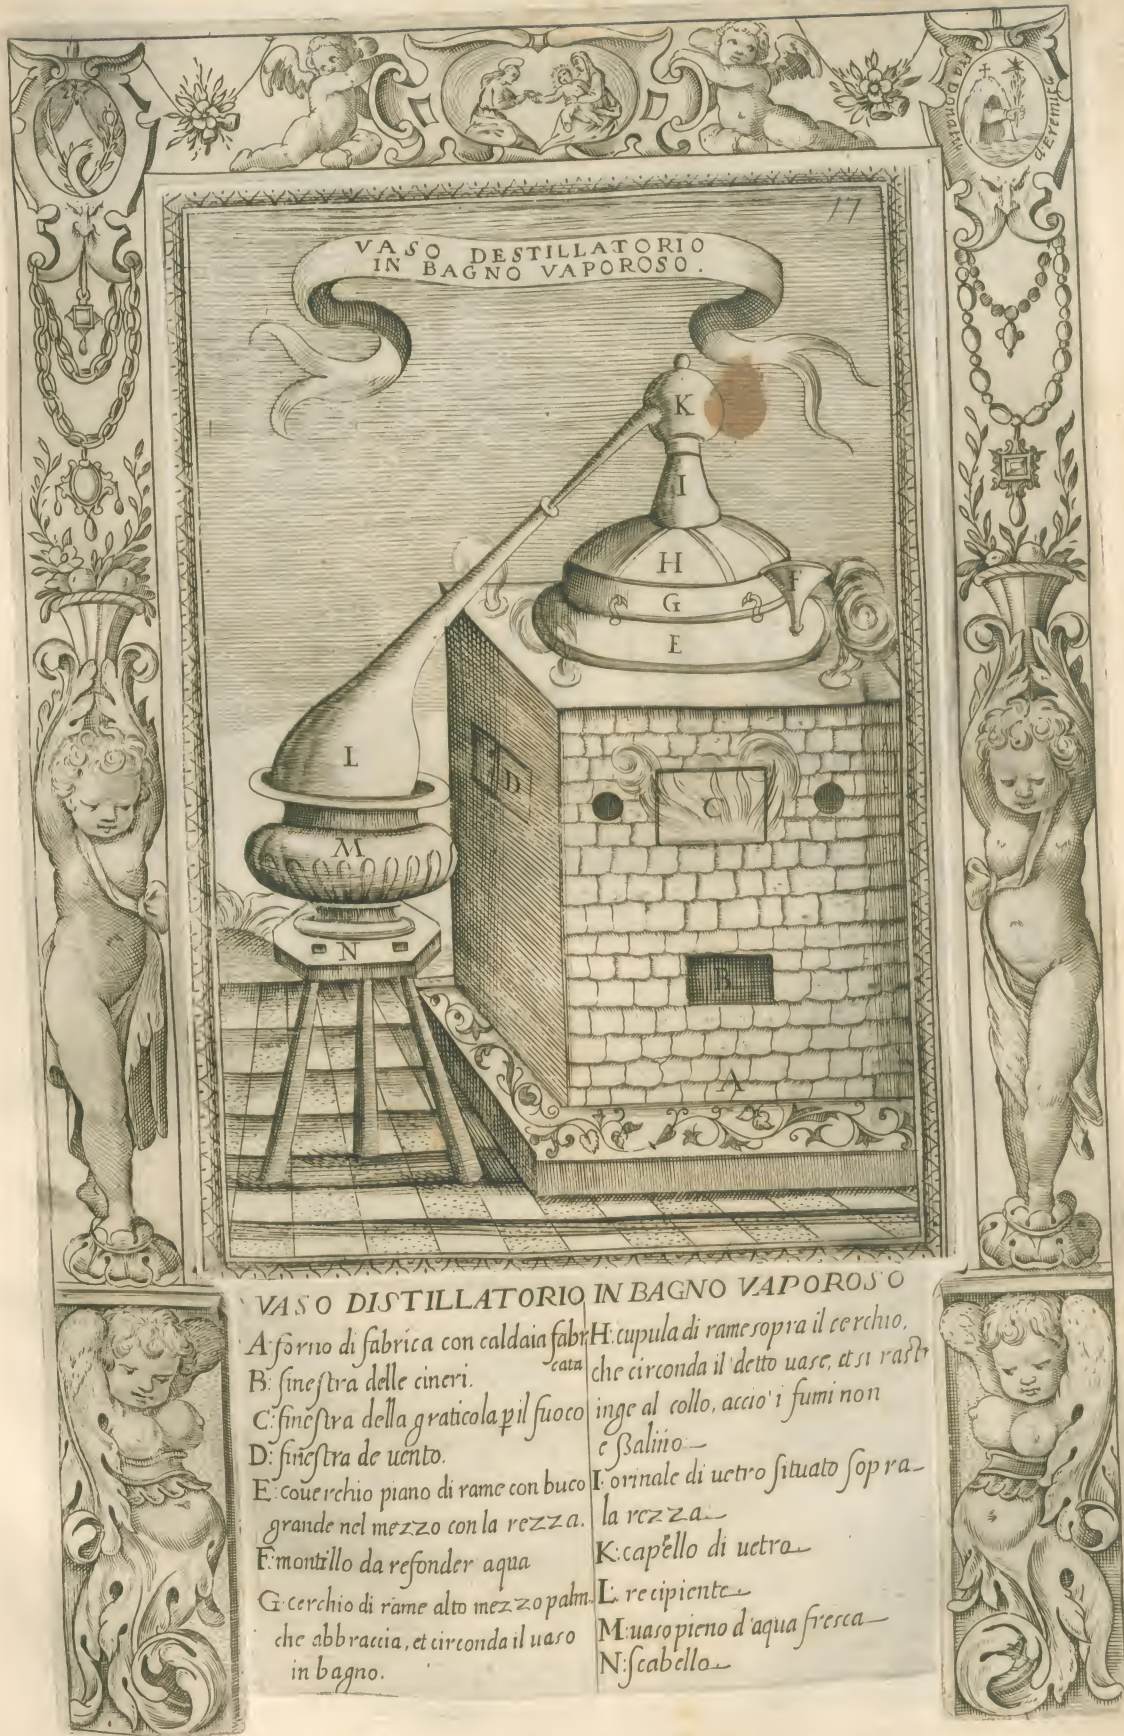 Fra Donnato
d'Eremita
17
VASO DESTILLATORIO
IN BAGNO VAPOROSO.
K
I
H
F
G
E
L
D
C
M
N
B
A
VASO DISTILLATORIO IN BAGNO VAPOROSO
A: forno di fabrica con caldaia fabr
cata
B: finestra delle cineri.
C: finestra della graticola p il fuoco
D: finestra de uento.
E: couerchio piano di rame con buco
grande nel mezzo con la rezza.
F: montillo da refonder aqua
G: cerchio di rame alto mezzo palm.
che abbraccia, et circonda il uaso
in bagno.
H: cupula di rame sopra il cerchio,
che circonda il detto uase, et si rastr
inge al collo, accio' i fumi non
eßalino
I: orinale di uetro situato sopra
la rezza
K: capello di uetro
L: recipiente
M: uaso pieno d'aqua fresca
N: scabello